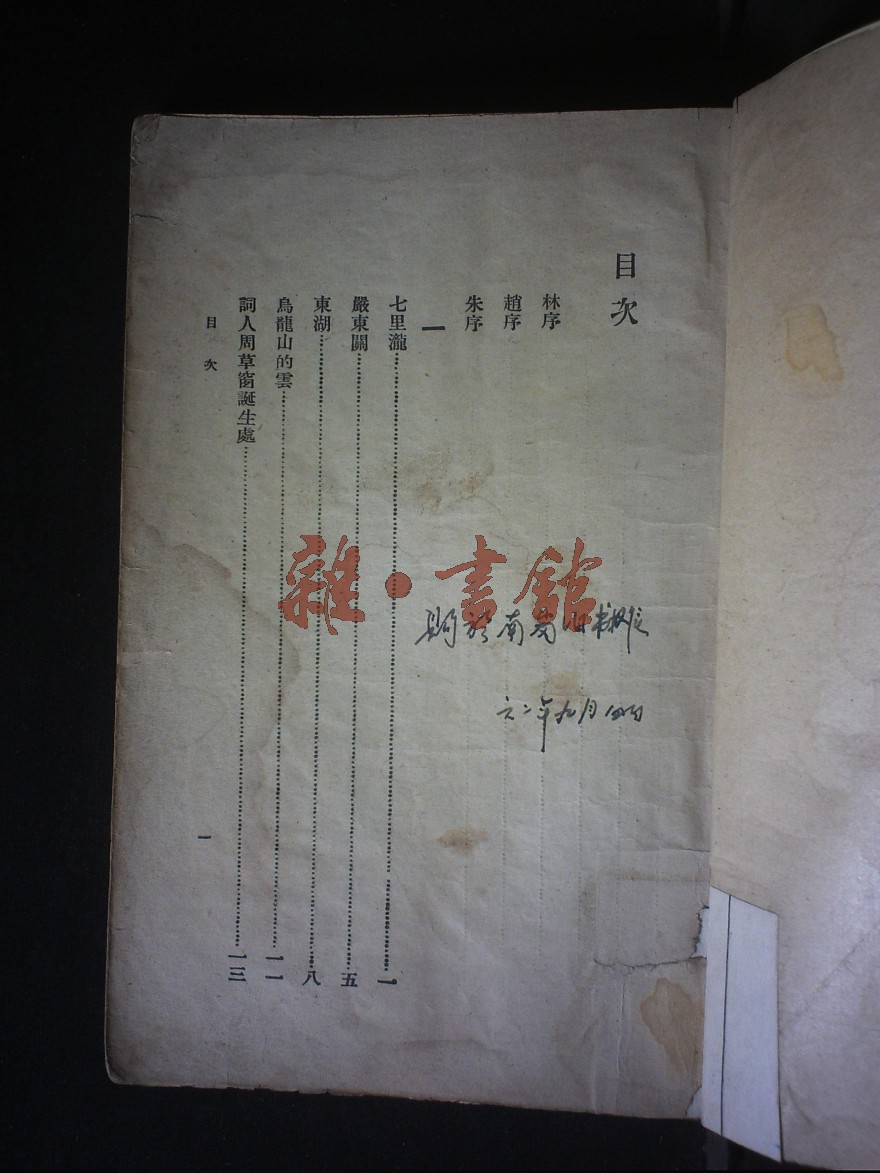 目次
林序
趙序
朱序
一
七里瀧……一
嚴東關……五
東湖……八
烏龍山的雲……一一
詞人周草窗誕生處……一三
目次
一
雜·書館
六二年九月